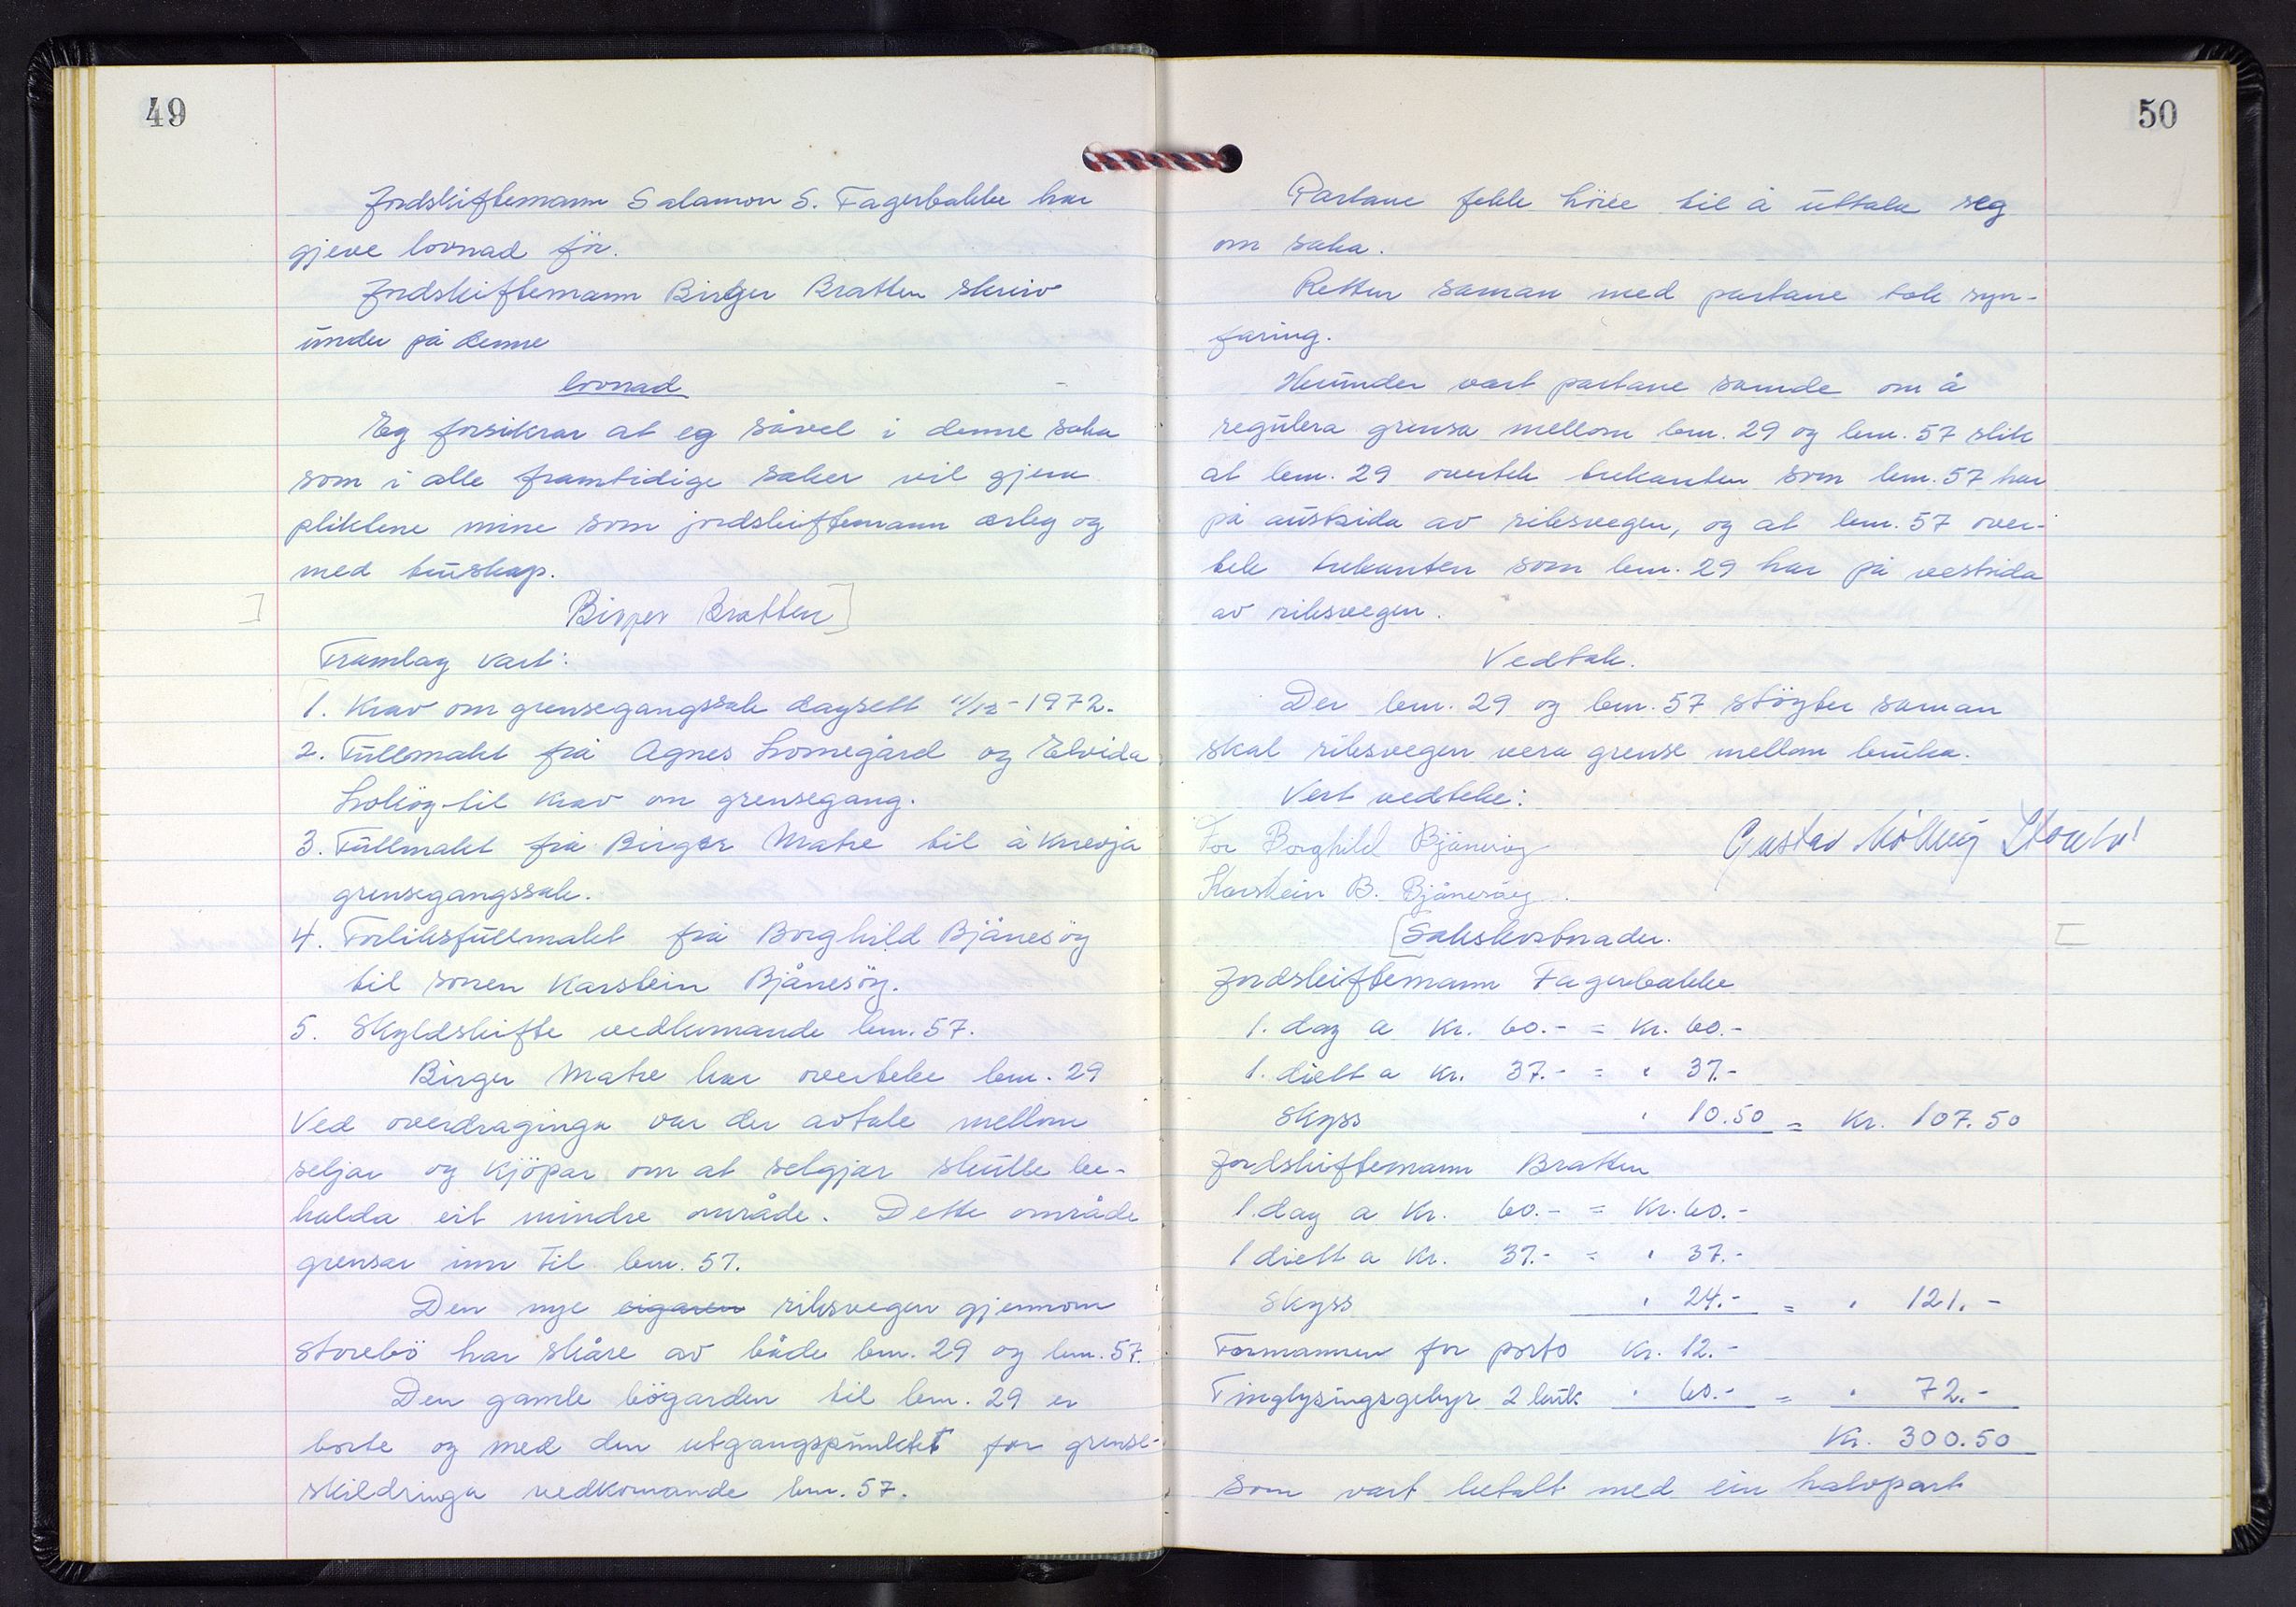 49
Jordskiftemann Salamon S. Fagerbakke har
gjeve lovnad för.
Jordskiftemann Birger Bratten skreiv
under på denne
lovnad
Eg forsikrar at eg såvel i denne saka
som i alle framtidige saker vil gjera
pliktene mine som jordskiftemann ærleg og
med truskap.
Birger Bratten]
Framlag vart:
1. Krav om grensegangssak dagsett 11/12-1972.
2. Fullmakt frå Agnes Lomegård og Elvida
til krav om grensegang.
3. Fullmakt frå Birger Matre til å krevja
grensegangssak.
4. Forliksfullmakt frå Borghild Bjånesöy
til sonen Karstein Bjånesöy.
5. Skyldskifte vedkomande bnr. 57.
Birger Matre har overteke bnr. 29
Ved overdraginga var der avtale mellom
seljar og kjöpar om at selgjar skulle be-
halda eit mindre område. Dette område
grensar inn til bnr. 57.
Den nye eigaren riksvegen gjennom
Storebö har skåre av både bnr. 29 og bnr. 57.
Den gamle bögarden til bnr. 29 er
borte og med den utgangspunktet for grense-
skildringa vedkomande bnr. 57.
50
Partane fekk höve til å uttala seg
om saka.
Retten saman med partane tok syn-
faring.
Herunder vart partane samde om å
regulera grensa mellom bnr. 29 og bnr. 57 slik
at bnr. 29 overtek trekanten som bnr. 57 har
på austsida av riksvegen, og at bnr. 57 over-
tek trekanten som bnr. 29 har på vestsida
av riksvegen.
Vedtak.
Der bnr. 29 og bnr. 57 stöyter saman
skal riksvegen vera grense mellom bruka.
Vert vedteke:
For Borghild Bjånesöy Gustav
Karstein B. Bjånesöy
[Sakskostnader.
Jordskiftemann Fagerbakke
1. dag a kr. 60.- = kr. 60.-
1. diett a kr. 37.- = " 37.-
Skyss " 10.50 = kr. 107.50
Jordskiftemann Bratten
1. dag a kr. 60.- = kr. 60.-
1 diett a kr. 37.- = " 37.-
Skyss " 24.- = " 121.-
Formannen for porto kr. 12.-
Tinglysingsgebyr 2 bruk " 60.- = " 72.-
Kr. 300.50
som vart betalt med ein halvpart